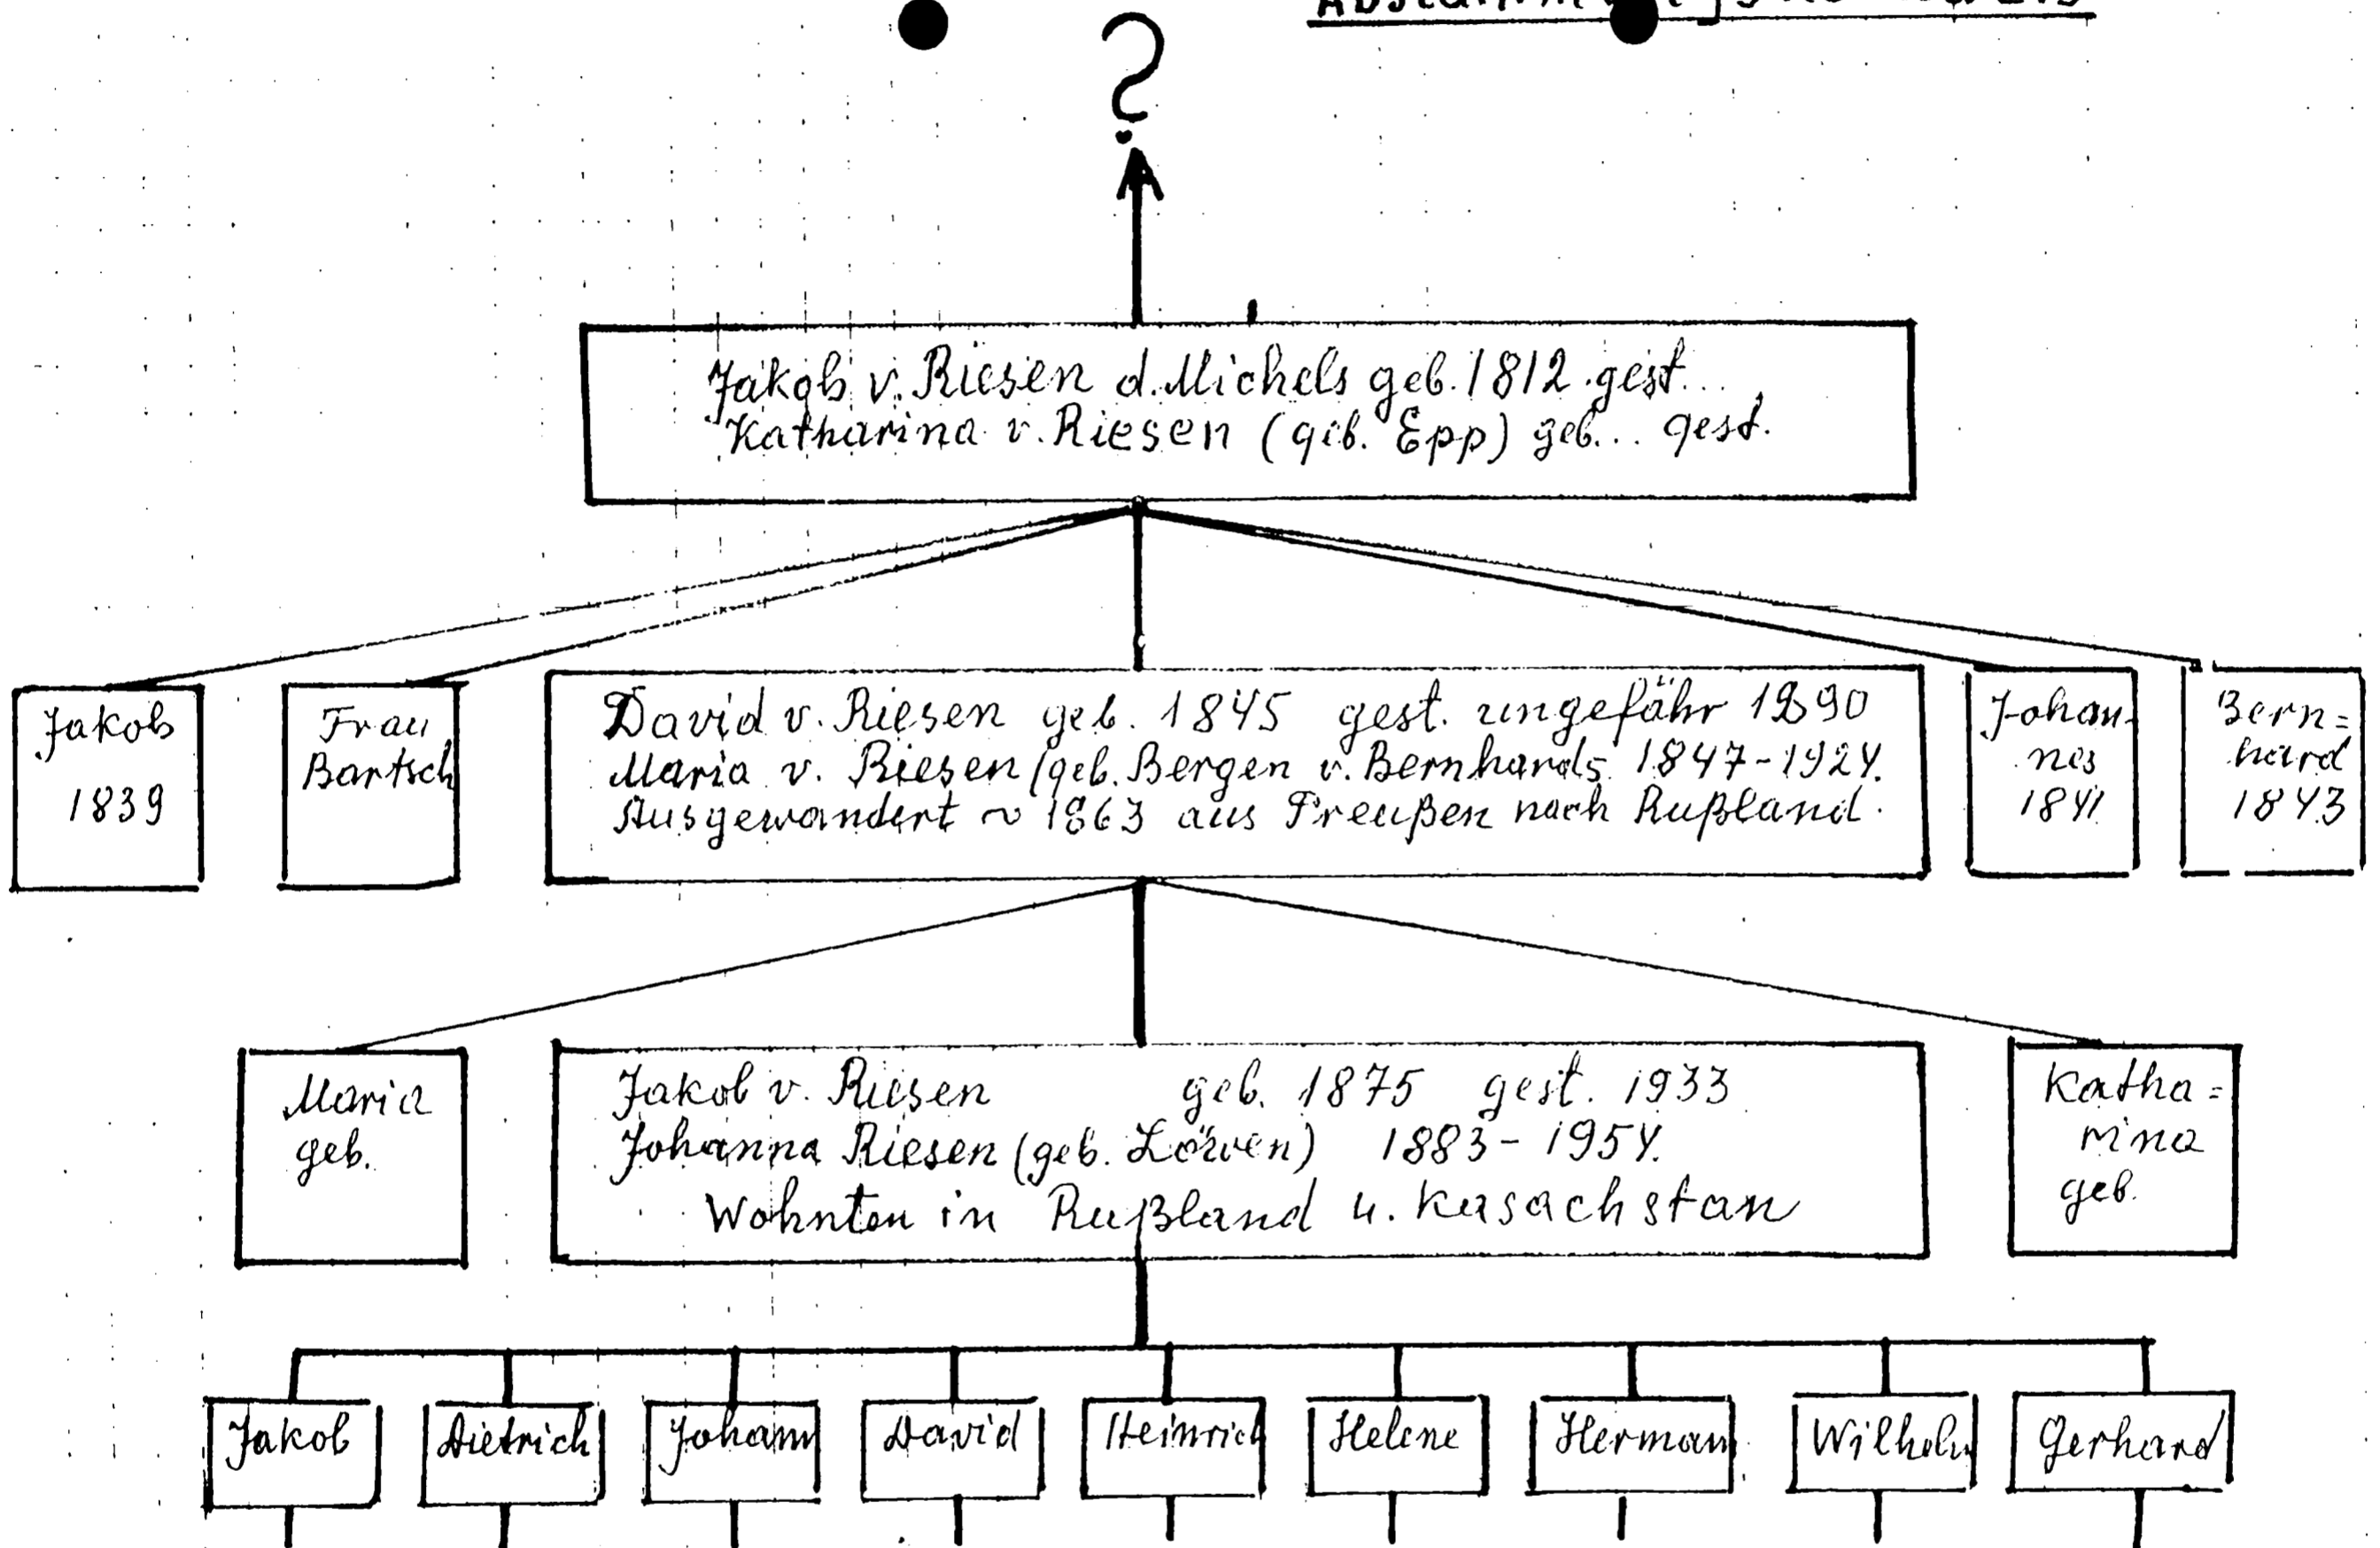 ?
Jakob v. Riesen d. Michels geb. 1812 gest...
Katharina v. Riesen (geb. Epp) geb... gest.
Jakob
1839
Frau
Bartsch
David v. Riesen geb. 1845 gest. ungefähr 1890
Maria v. Riesen (geb. Bergen v. Bernhards 1847-1924.
Ausgewandert ~ 1863 aus Preußen nach Rußland.
Johan-
nes
1841
Bern=
hard
1843
Maria
geb.
Jakob v. Riesen geb. 1875 gest. 1933
Johanna Riesen (geb. Löwen) 1883-1954.
Wohnten in Rußland u. Kasachstan
Katha=
rina
geb.
Jakob
Dietrich
Johann
David
Heinrich
Helene
Herman
Wilhelm
Gerhard